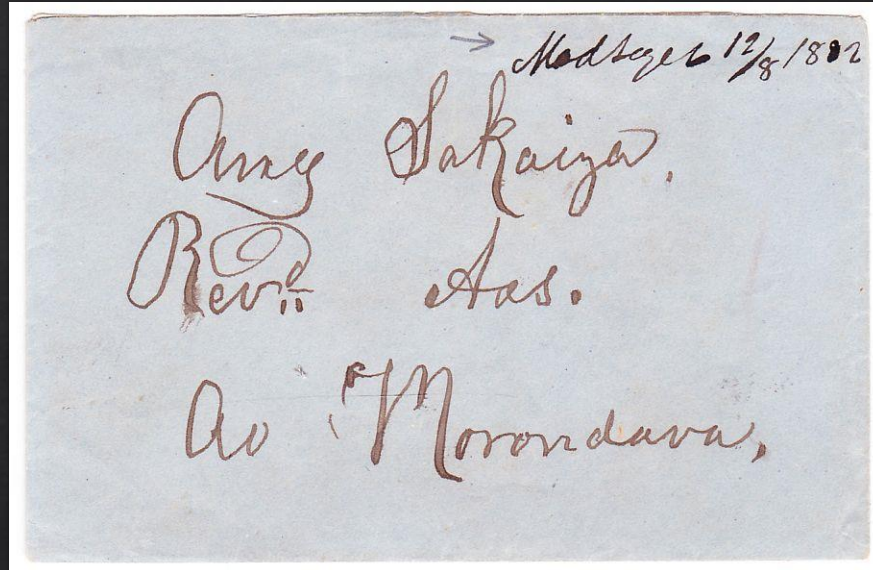 Modtaget 12/8 1882
Amy Sakaiza,
Revd. Aas.
Ao Morondava,